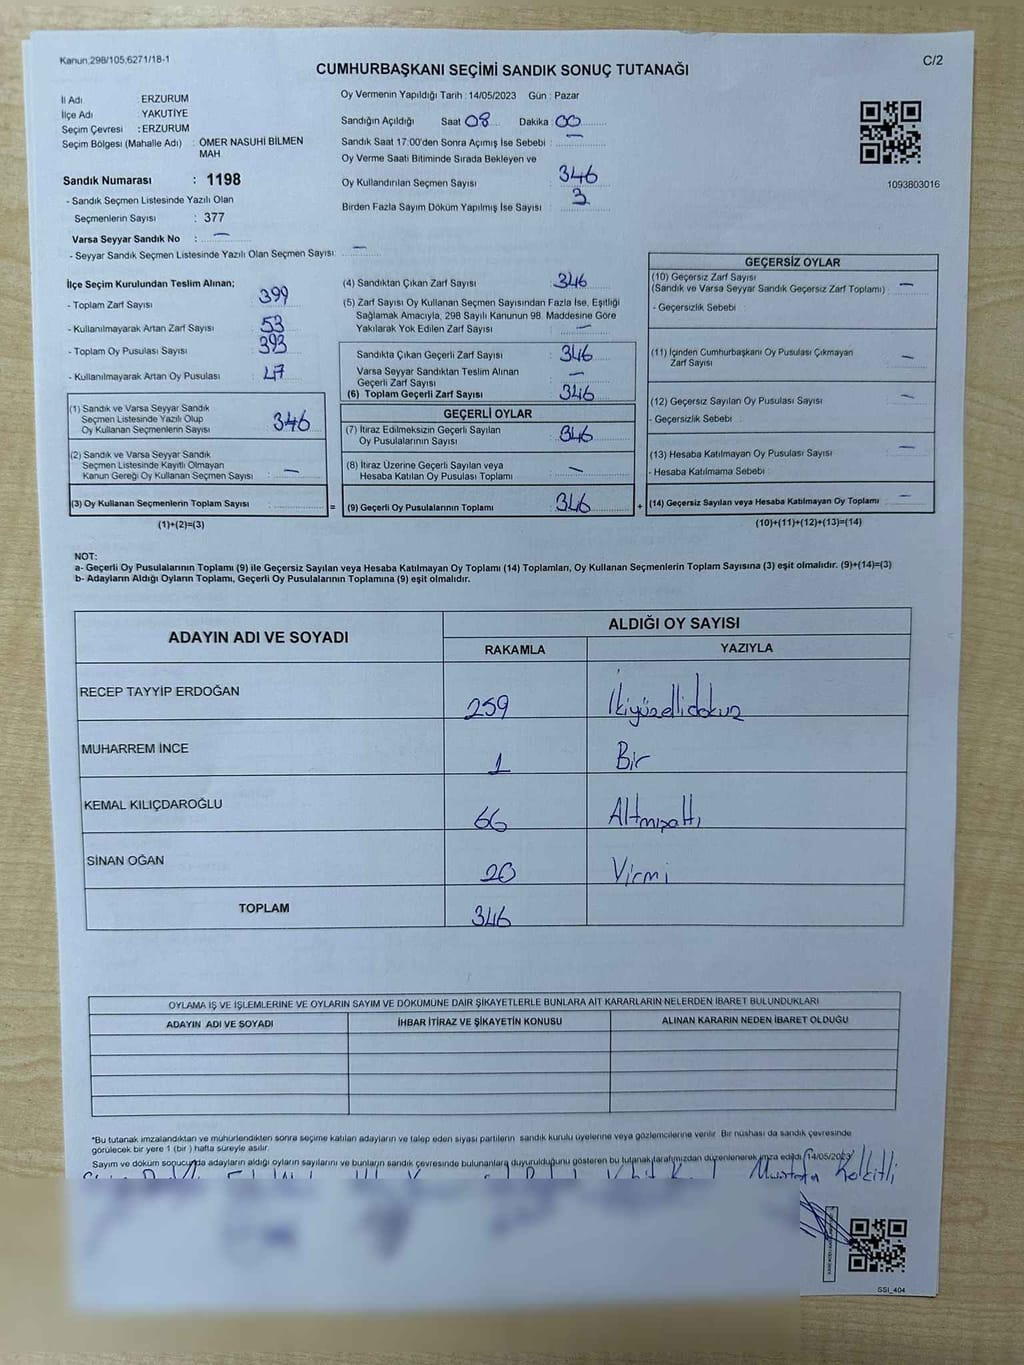 Kanun.298/105,6271/18-1
C/2
CUMHURBAŞKANI SEÇİMİ SANDIK SONUÇ TUTANAĞI
İl Adı : ERZURUM
İlçe Adı : YAKUTİYE
Seçim Çevresi : ERZURUM
Seçim Bölgesi (Mahalle Adı) : ÖMER NASUHİ BİLMEN MAH
Sandık Numarası : 1198
- Sandık Seçmen Listesinde Yazılı Olan
Seçmenlerin Sayısı : 377
Varsa Seyyar Sandık No : —
- Seyyar Sandık Seçmen Listesinde Yazılı Olan Seçmen Sayısı: —
Oy Vermenin Yapıldığı Tarih : 14/05/2023 Gün : Pazar
Sandığın Açıldığı Saat 08 Dakika : 00
Sandık Saat 17:00'den Sonra Açımış İse Sebebi : —
Oy Verme Saati Bitiminde Sırada Bekleyen ve
Oy Kullandırılan Seçmen Sayısı : 346
Birden Fazla Sayım Döküm Yapılmış İse Sayısı : 3
1093803016
İlçe Seçim Kurulundan Teslim Alınan;
- Toplam Zarf Sayısı : 399
- Kullanılmayarak Artan Zarf Sayısı : 53
- Toplam Oy Pusulası Sayısı : 393
- Kullanılmayarak Artan Oy Pusulası : 47
(1) Sandık ve Varsa Seyyar Sandık
Seçmen Listesinde Yazılı Olup
Oy Kullanan Seçmenlerin Sayısı : 346
(2) Sandık ve Varsa Seyyar Sandık
Seçmen Listesinde Kayıtlı Olmayan
Kanun Gereği Oy Kullanan Seçmen Sayısı : —
(3) Oy Kullanan Seçmenlerin Toplam Sayısı :
(1)+(2)=(3)
(4) Sandıktan Çıkan Zarf Sayısı : 346
(5) Zarf Sayısı Oy Kullanan Seçmen Sayısından Fazla İse, Eşitliği
Sağlamak Amacıyla, 298 Sayılı Kanunun 98. Maddesine Göre
Yakılarak Yok Edilen Zarf Sayısı : —
Sandıkta Çıkan Geçerli Zarf Sayısı : 346
Varsa Seyyar Sandıktan Teslim Alınan
Geçerli Zarf Sayısı : —
(6) Toplam Geçerli Zarf Sayısı : 346
GEÇERLİ OYLAR
(7) İtiraz Edilmeksizin Geçerli Sayılan
Oy Pusulalarının Sayısı : 346
(8) İtiraz Üzerine Geçerli Sayılan veya
Hesaba Katılan Oy Pusulası Toplamı : —
= (9) Geçerli Oy Pusulalarının Toplamı : 346
GEÇERSİZ OYLAR
(10) Geçersiz Zarf Sayısı
(Sandık ve Varsa Seyyar Sandık Geçersiz Zarf Toplamı) : —
- Geçersizlik Sebebi :
(11) İçinden Cumhurbaşkanı Oy Pusulası Çıkmayan
Zarf Sayısı : —
(12) Geçersiz Sayılan Oy Pusulası Sayısı : —
- Geçersizlik Sebebi :
(13) Hesaba Katılmayan Oy Pusulası Sayısı : —
- Hesaba Katılmama Sebebi :
+ (14) Geçersiz Sayılan veya Hesaba Katılmayan Oy Toplamı : —
(10)+(11)+(12)+(13)=(14)
NOT:
a- Geçerli Oy Pusulalarının Toplamı (9) ile Geçersiz Sayılan veya Hesaba Katılmayan Oy Toplamı (14) Toplamları, Oy Kullanan Seçmenlerin Toplam Sayısına (3) eşit olmalıdır. (9)+(14)=(3)
b- Adayların Aldığı Oyların Toplamı, Geçerli Oy Pusulalarının Toplamına (9) eşit olmalıdır.
ADAYIN ADI VE SOYADI ALDIĞI OY SAYISI
RAKAMLA YAZIYLA
RECEP TAYYİP ERDOĞAN 259 İkiyüzellidokuz
MUHARREM İNCE 1 Bir
KEMAL KILIÇDAROĞLU 66 Altmışaltı
SİNAN OĞAN 20 Yirmi
TOPLAM 346
OYLAMA İŞ VE İŞLEMLERİNE VE OYLARIN SAYIM VE DÖKÜMÜNE DAİR ŞİKAYETLERLE BUNLARA AİT KARARLARIN NELERDEN İBARET BULUNDUKLARI
ADAYIN ADI VE SOYADI İHBAR İTİRAZ VE ŞİKAYETİN KONUSU ALINAN KARARIN NEDEN İBARET OLDUĞU
*Bu tutanak imzalandıktan ve mühürlendikten sonra seçime katılan adayların ve talep eden siyasi partilerin sandık kurulu üyelerine veya gözlemcilerine verilir. Bir nüshası da sandık çevresinde
görülecek bir yere 1 (bir ) hafta süreyle asılır.
Sayım ve döküm sonucunda adayların aldığı oyların sayılarını ve bunların sandık çevresinde bulunanlara duyurulduğunu gösteren bu tutanak tarafımızdan düzenlenerek imza edildi. 14/05/2023
Mustafa
SSI_404